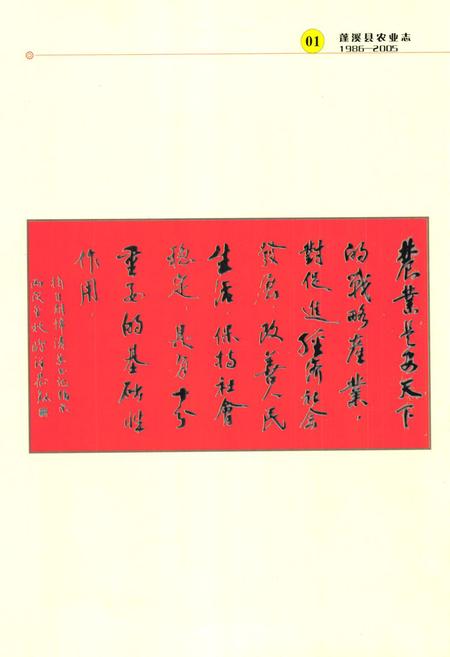 01
蓬溪县农业志
1986—2005
農業是安天下
的戰略產業，
對促進經济社会
發展 改善人民
生活 保持社會
稳定，具有十分
重要的基础性
作用